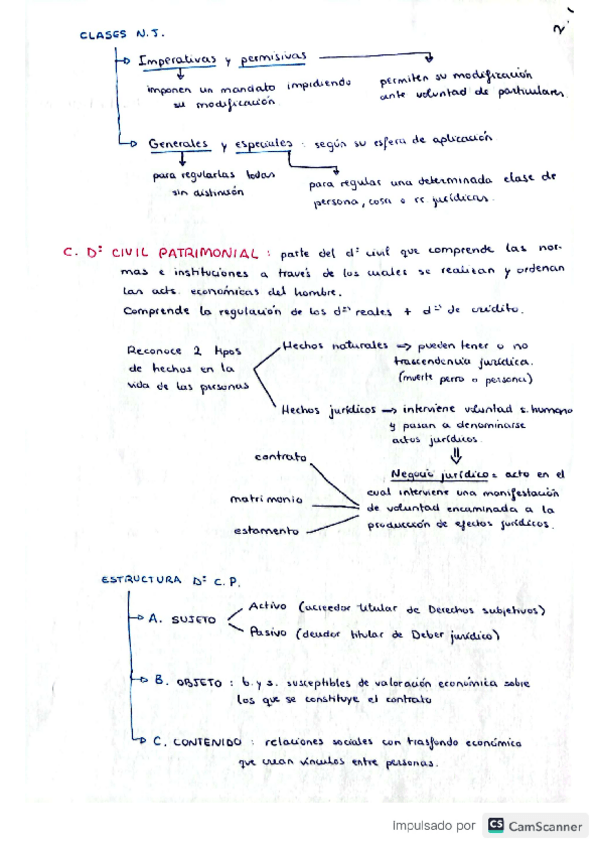 2
CLASES N.J.
Imperativas y permisivas
imponen un mandato impidiendo
su modificación
permiten su modificación
ante voluntad de particulares.
Generales y especiales : según su esfera de aplicación
para regularlas todas
sin distinción
para regular una determinada clase de
persona, cosa o rr. jurídicas.
C. Dº CIVIL PATRIMONIAL : parte del dº civil que comprende las nor-
mas e instituciones a través de los cuales se realizan y ordenan
las acts. económicas del hombre.
Comprende la regulación de los dºs reales + dºs de crédito.
Reconoce 2 tipos
de hechos en la
vida de las personas
Hechos naturales → pueden tener o no
trascendencia jurídica.
(muerte perro o persona)
Hechos jurídicos → interviene voluntad s. humano
y pasan a denominarse
actos jurídicos.
contrato
matrimonio
estamento
Negocio jurídico : acto en el
cual interviene una manifestación
de voluntad encaminada a la
producción de efectos jurídicos.
ESTRUCTURA Dº C.P.
A. SUJETO
Activo (acreedor titular de Derechos subjetivos)
Pasivo (deudor titular de Deber jurídico)
B. OBJETO : b. y s. susceptibles de valoración económica sobre
los que se constituye el contrato
C. CONTENIDO : relaciones sociales con trasfondo económico
que crean vínculos entre personas.
Impulsado por CS CamScanner